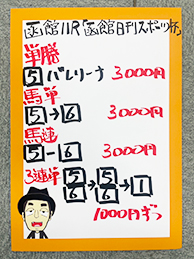 函館11R「函館日刊スポーツ杯」
単勝
5 バレリーナ 3000円
馬単
5→6 3000円
馬連
5-6 3000円
3連単
5 6→5 6→1
1000円ずつ